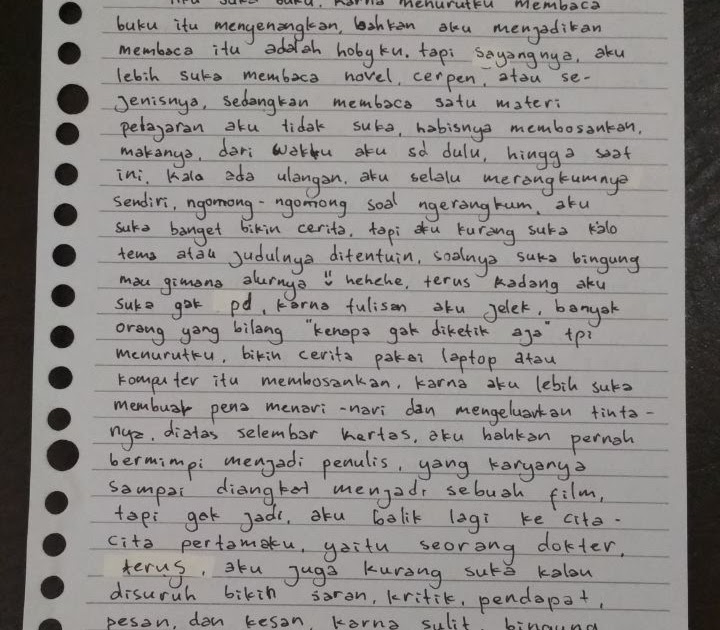 aku suka buku, karna menurutku membaca
buku itu menyenangkan, bahkan aku menjadikan
membaca itu adalah hobyku. tapi sayangnya, aku
lebih suka membaca novel, cerpen, atau se-
jenisnya, sedangkan membaca satu materi
pelajaran aku tidak suka, habisnya membosankan,
makanya, dari waktu aku sd dulu, hingga saat
ini, kala ada ulangan, aku selalu merangkumnya
sendiri, ngomong-ngomong soal ngerangkum, aku
suka banget bikin cerita, tapi aku kurang suka kalo
tema atau judulnya ditentuin, soalnya suka bingung
mau gimana alurnya hehehe, terus kadang aku
suka gak pd, karna tulisan aku jelek, banyak
orang yang bilang "kenapa gak diketik aja" tpi
menurutku, bikin cerita pakai laptop atau
komputer itu membosankan, karna aku lebih suka
membuat pena menari-nari dan mengeluarkan tinta-
nya, diatas selembar kertas, aku bahkan pernah
bermimpi menjadi penulis, yang karyanya
sampai diangkat menjadi sebuah film,
tapi gak jadi, aku balik lagi ke cita-
cita pertamaku, yaitu seorang dokter,
terus, aku juga kurang suka kalau
disuruh bikin saran, kritik, pendapat,
pesan, dan kesan, karna sulit, bingung